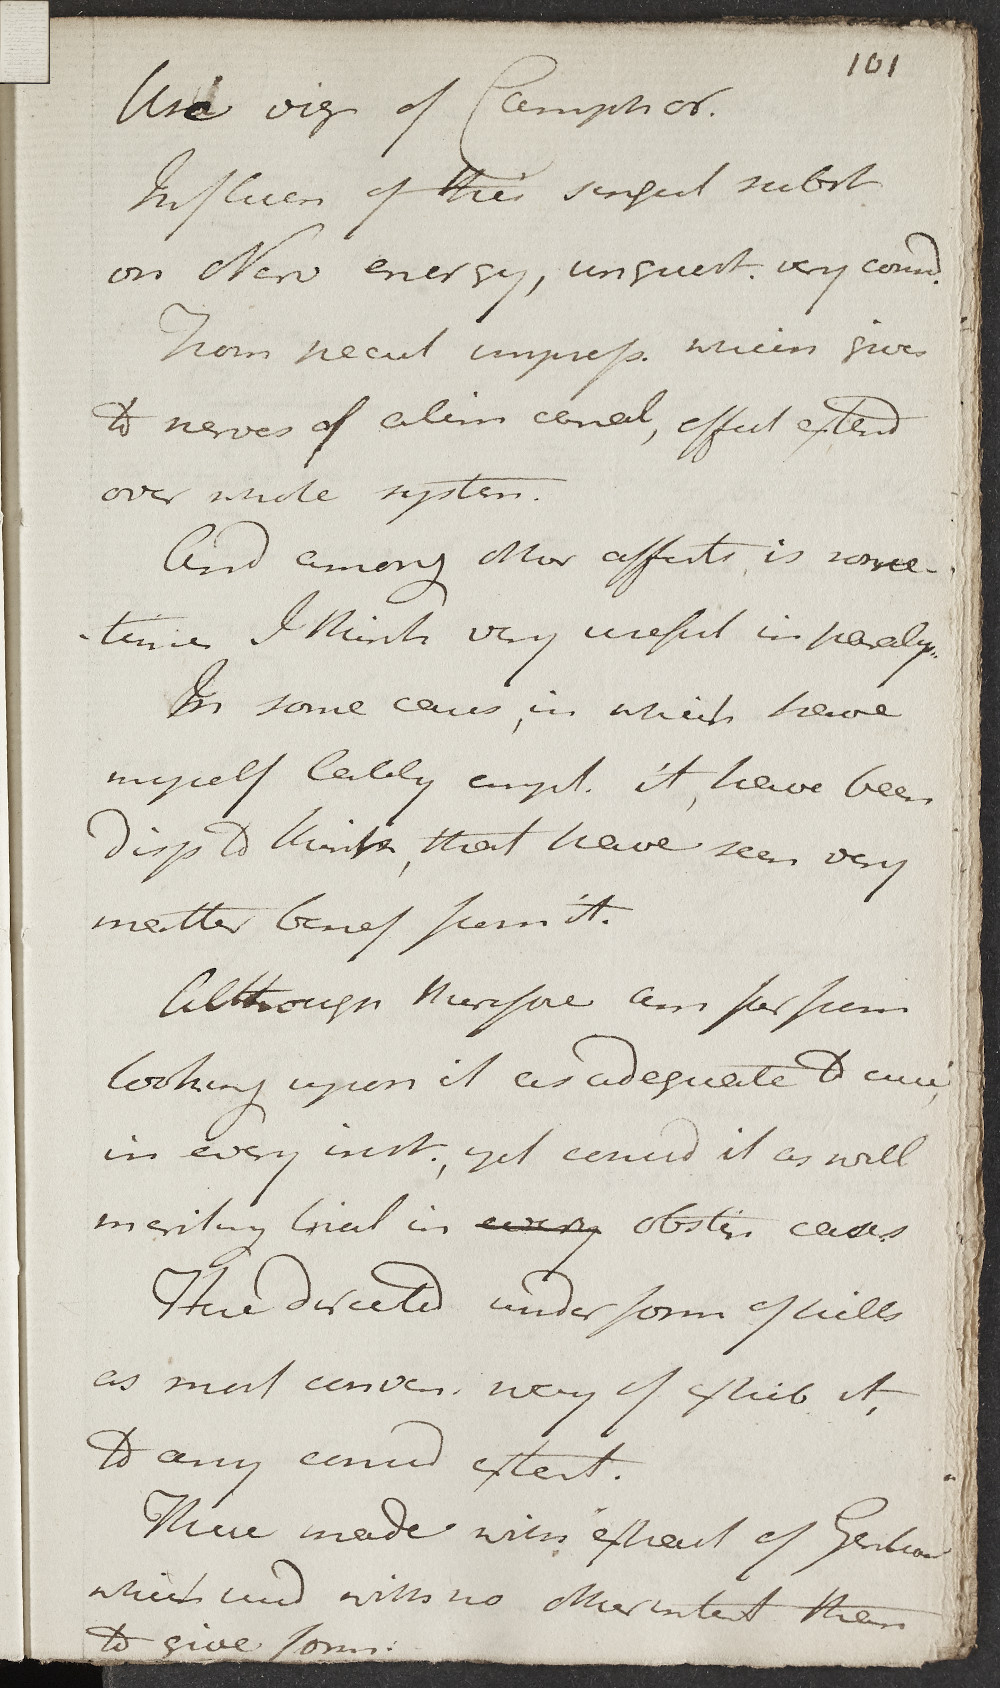 101
Use vig of Camphor.
Influen of this singul subst
on Nerv energy, unquest. very consid.
From pecul impress. which gives
to nerves of alim canal, effect extend
over whole system.
And among other affects, is some-
-times I think very useful in paraly.
In some cases, in which have
myself lately empl. it, have been
disp to think, that have seen very
matter benef from it.
Although therefore am far from
looking upon it as adequate to cure,
in every inst., yet consid it as well
meriting trial in every obstin cases
Have directed under form of pills
as most conven. way of exhib it,
to any consid extent.
These made with extract of Gentian
which used with no other intent than
to give form.